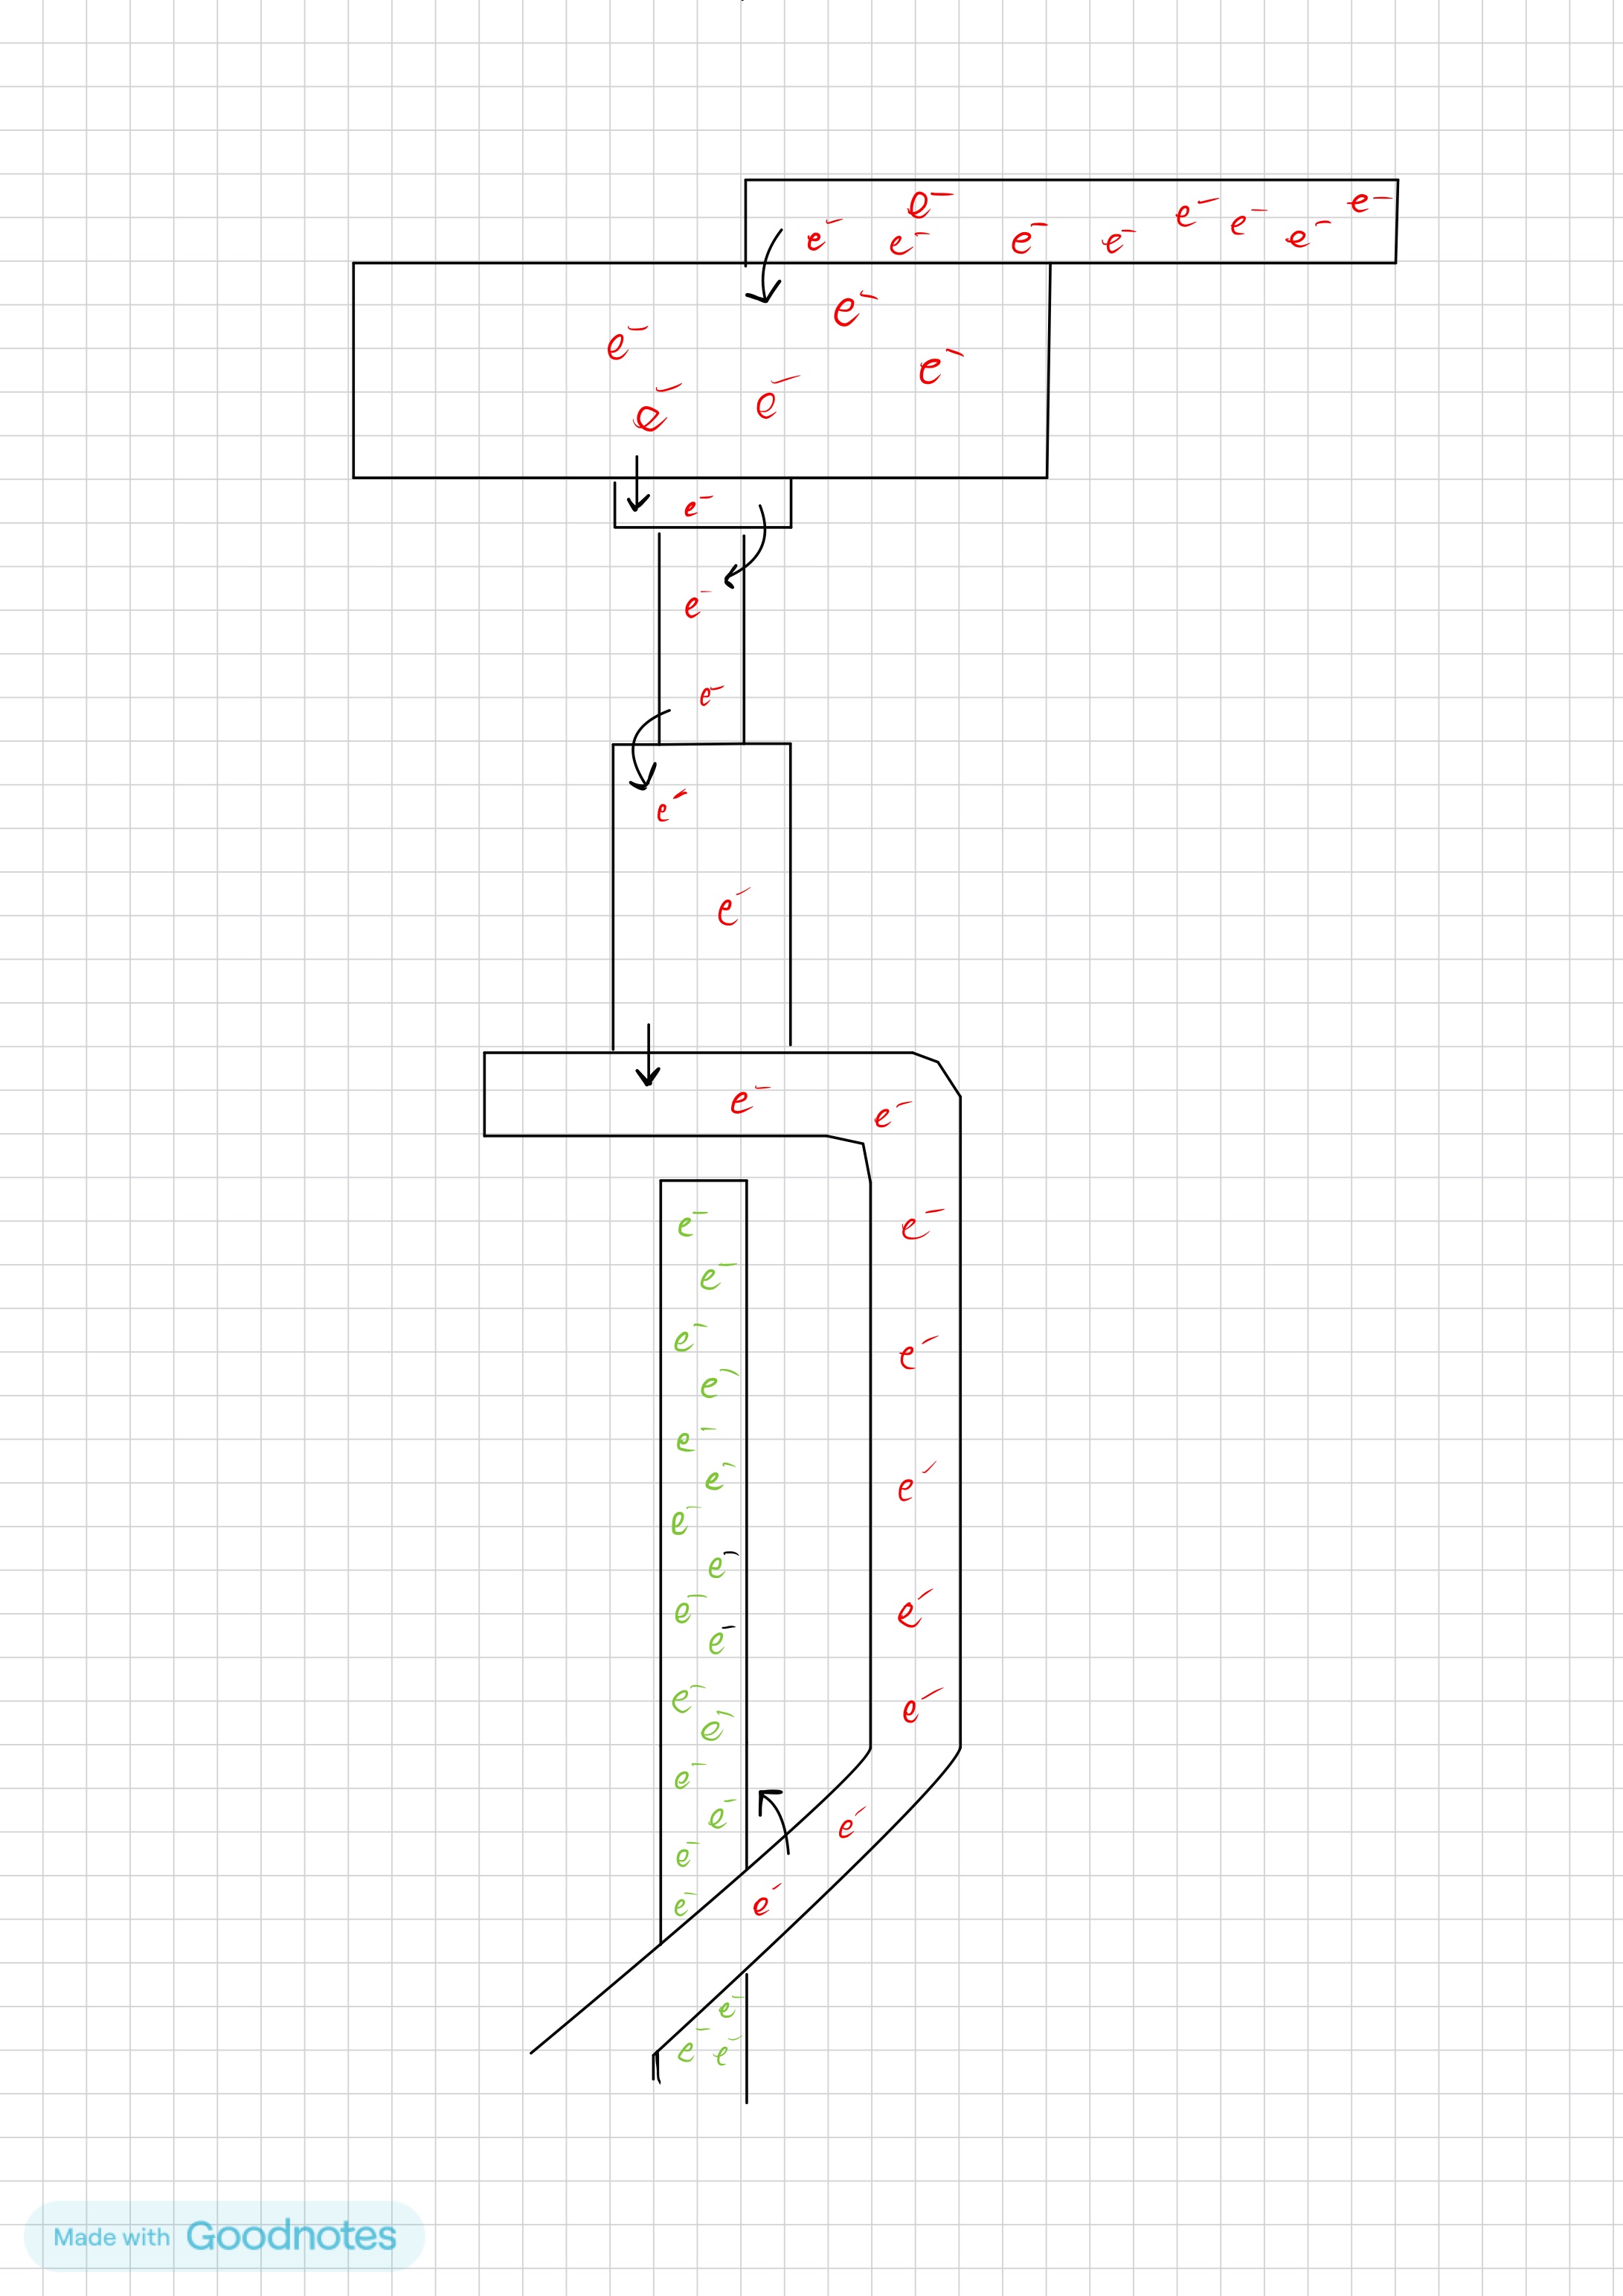 e⁻ e⁻ e⁻ e⁻ e⁻ e⁻ e⁻ e⁻ e⁻
e⁻ e⁻ e⁻ e⁻ e⁻
e⁻
e⁻
e⁻
e⁻
e⁻
e⁻ e⁻
e⁻ e⁻
e⁻
e⁻ e⁻
e⁻
e⁻
e⁻ e⁻
e⁻
e⁻
e⁻ e⁻
e⁻
e⁻
e⁻ e⁻
e⁻
e⁻
e⁻ e⁻
e⁻
e⁻ e⁻
e⁻
e⁻ e⁻
Made with Goodnotes